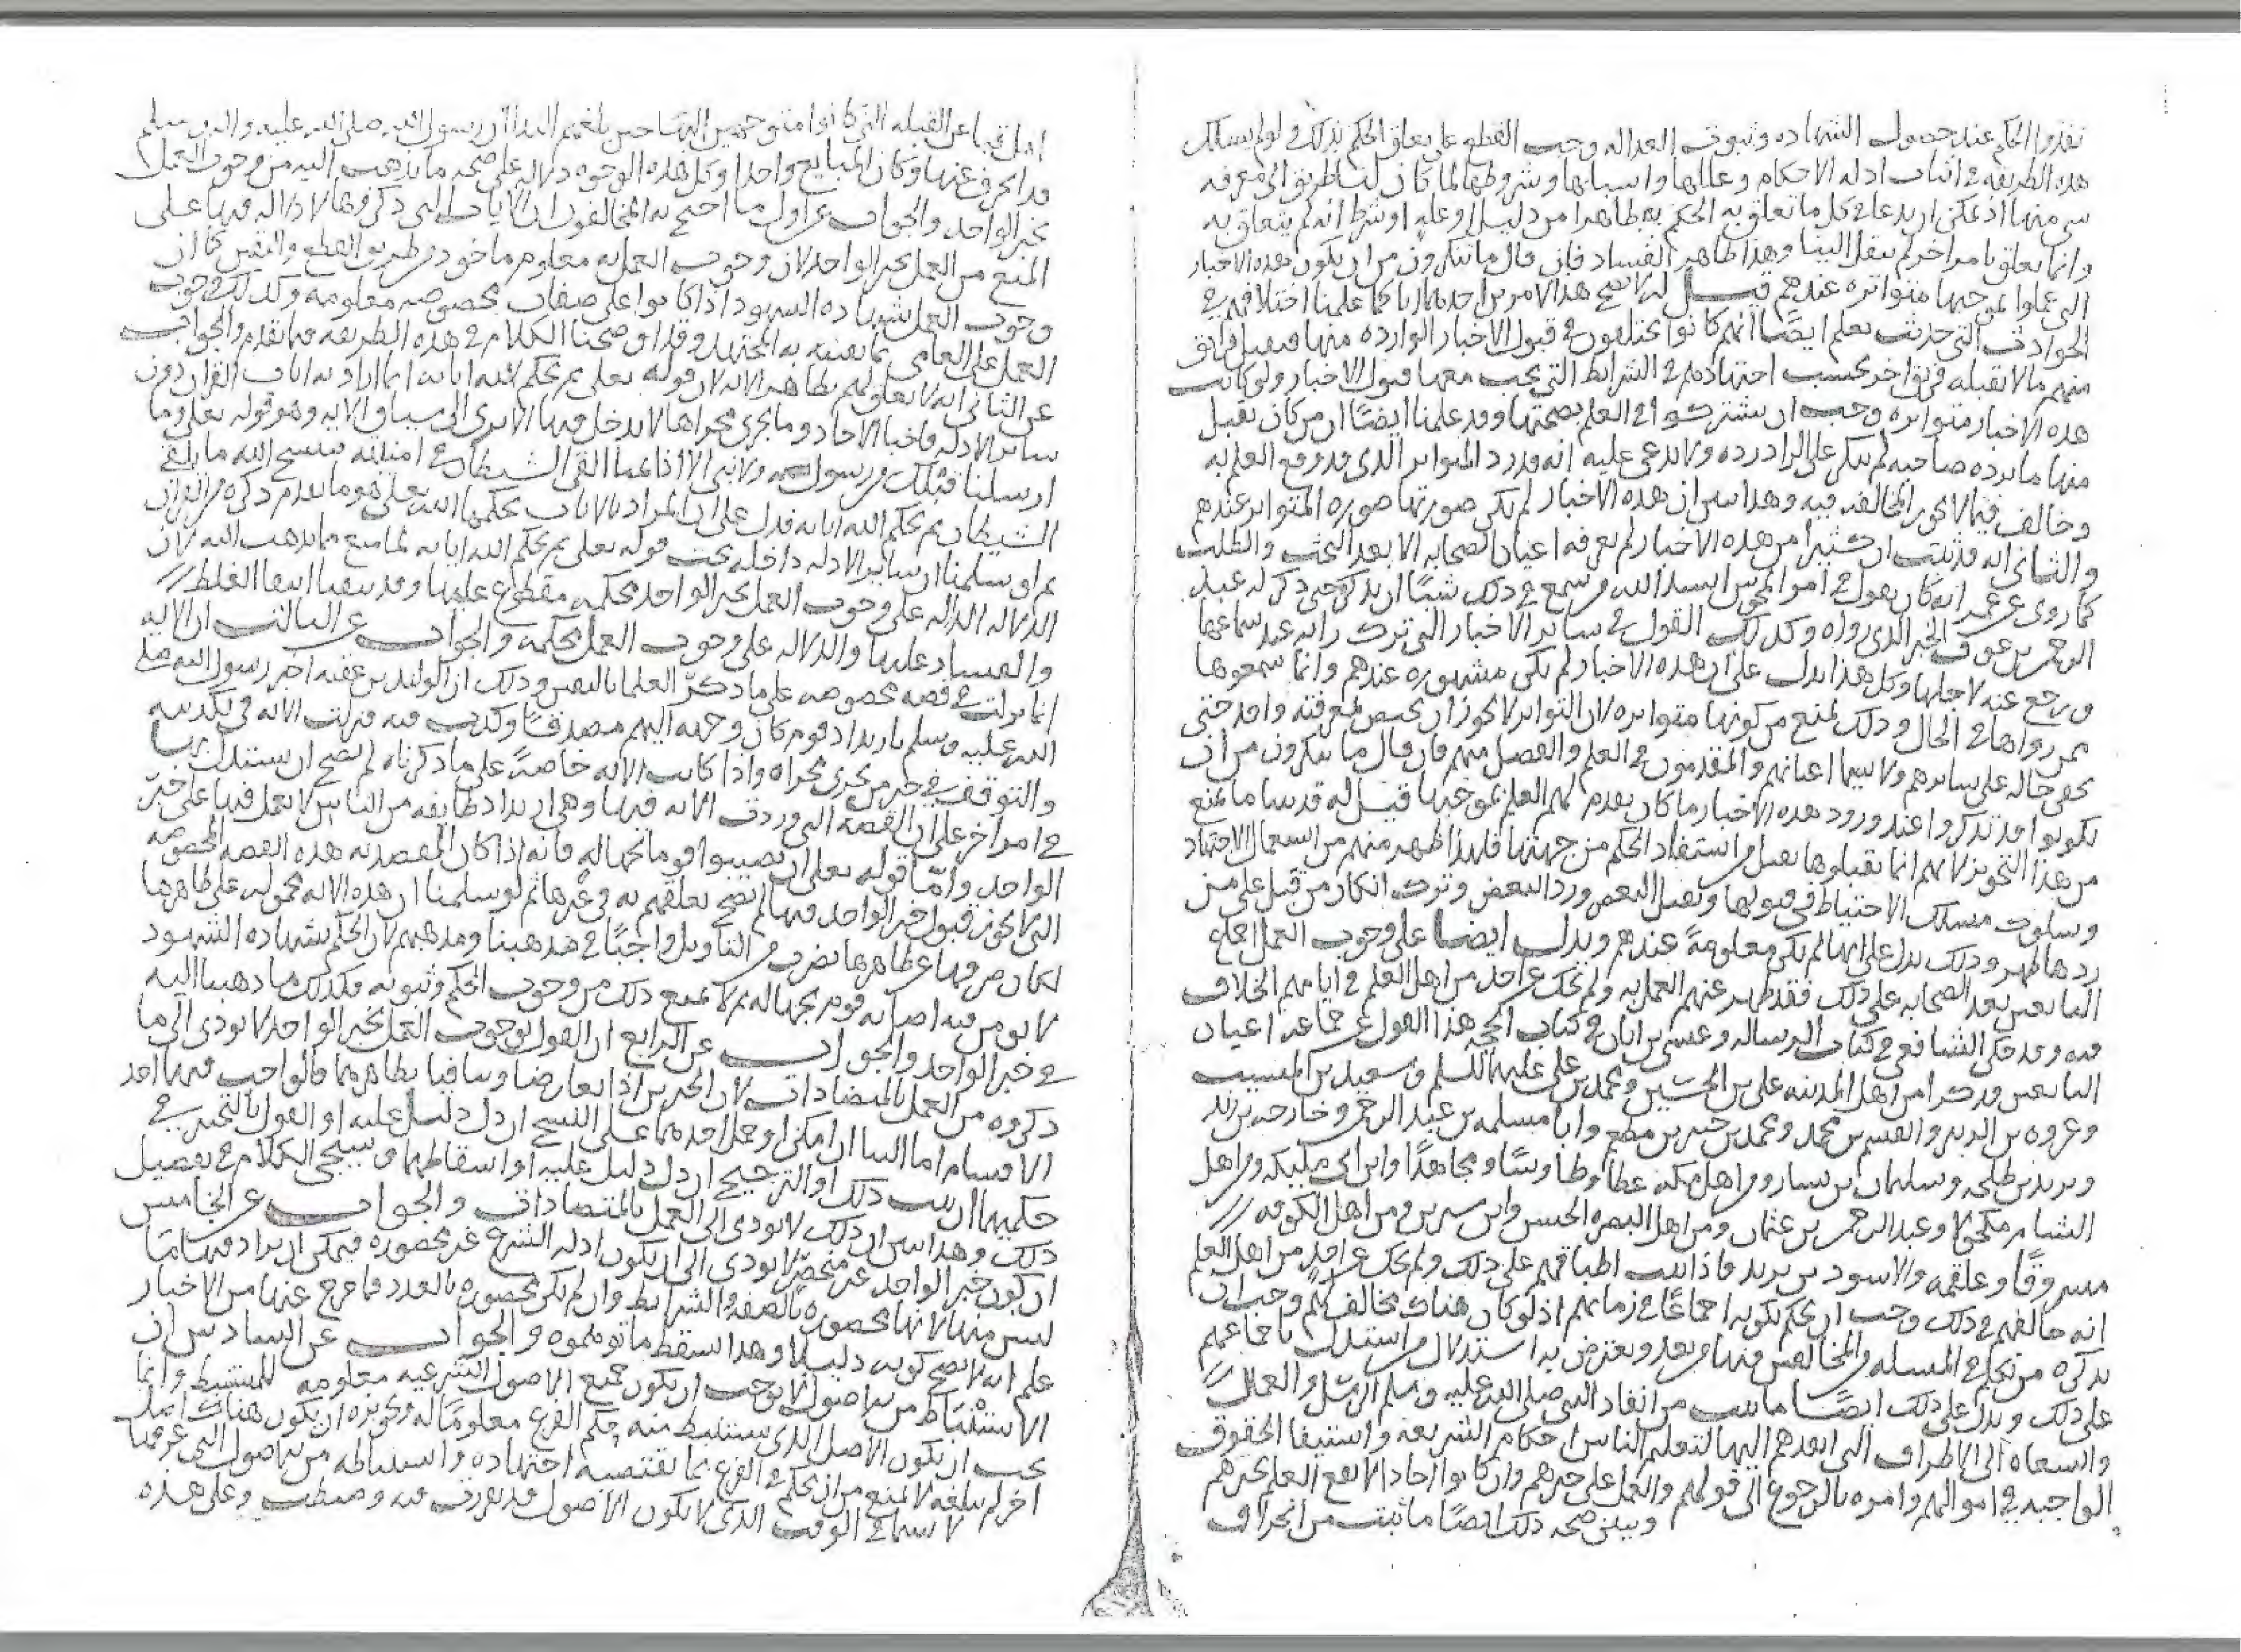 نفذوا الحكم عند حصول الشهاده وثبوت العداله وجب القطع على تعلق الحكم بذلك ولو لم نسلك
هذه الطريقه في اثبات ادله الاحكام وعللها واسبابها وشروطها لما كان لنا طريق الى معرفه
شي منها اذ يمكن ان يدعا في كل ما تعلق به الحكم به ظاهرا من دليل او عله او شرط انه لم يتعلق به
وانما تعلق بامر اخر لم ينقل الينا وهذا ظاهر الفساد فان قال ما تنكرون من ان يكون هذه الاخبار
التي عملوا بموجبها متواتره عندهم قيل له لا يصح هذا لامرين احدهما انا كما علمنا اختلافهم في
الحوادث التي حدثت نعلم ايضا انهم كانوا يختلفون في قبول الاخبار الوارده منها فيقبل فريق
منهم ما لا يقبله فريق اخر بحسب اجتهادهم في الشرايط التي يجب معها قبول الاخبار ولو كانت
هذه الاخبار متواتره وجب ان يشتركوا في العلم بصحتها وقد علمنا ايضا ان من كان يقبل
منها ما يرده صاحبه لم ينكر على الراد رده ولا يدعى عليه انه قد رد المتواتر الذي قد وقع العلم به
وخالف فيما لا يجوز المخالفه فيه وهذا يبين ان هذه الاخبار لم تكن صورتها صوره المتواتر عندهم
والثاني انه قد ثبت ان كثيرا من هذه الاخبار لم يعرفه اعيان الصحابه الا بعد البحث والطلب
كما روى عن عمر انه كان يقول في امر المجوس انشد الله من سمع في ذلك شيئا ان يذكره حتى ذكر له عبد
الرحمن بن عوف الخبر الذي رواه وكذلك القول في ساير الاخبار التي ترك رايه عند سماعها
ورجع عنه لاجلها وكل هذا يدل على ان هذه الاخبار لم تكن مشهوره عندهم وانما سمعوها
ممن رواها في الحال وذلك يمنع من كونها متواتره لان التواتر لا يجوز ان يختص بمعرفته واحد حتى
يخفى حاله على سايرهم ولا سيما اعيانهم والمتقدمون في العلم والفضل منهم فان قال ما تنكرون من ان
يكونوا قد تذكروا عند ورود هذه الاخبار ما كان تقدم لهم العلم بموجبها قيل له قد بينا ما يمنع
من هذا التجويز لانهم انما تقبلوها تقبل من استفاد الحكم من جهتها فلهذا ظهر منهم من استعمال الاجتهاد
وسلوك مسلك الاحتياط في قبولها وتقبل البعض ورد البعض وترك انكار من قبل على من
ردها ما ظهر وذلك يدل على انها لم تكن معلومة عندهم ويدل ايضا على وجوب العمل اجماع
التابعين بعد الصحابه على ذلك فقد ظهر عنهم العمل به ولم يحك عن احد من اهل العلم في ايامهم الخلاف
فيه وقد حكى الشافعي في كتاب الرساله وعيسى بن ابان في كتاب الحجه هذا القول عن جماعه اعيان
التابعين فذكرا من اهل المدينه علي بن الحسين ومحمد بن علي عليهما السلم وسعيد بن المسيب
وعروه بن الزبير والقسم بن محمد ومحمد بن جبير بن مطعم وابا سلمه بن عبد الرحمن وخارجه بن زيد
ويزيد بن طلحه وسليمان بن يسار ومن اهل مكه عطا وطاوسا ومجاهدا وابن ابي مليكه ومن اهل
الشام مكحولا وعبد الرحمن بن عثمان ومن اهل البصره الحسن وابن سيرين ومن اهل الكوفه
مسروقا وعلقمه والاسود بن يزيد فاذا ثبت اطباقهم على ذلك ولم يحك عن احد من اهل العلم
انه خالفهم في ذلك وجب ان يحكم بكونه اجماعا في زمانهم اذ لو كان هناك مخالف لهم وجب ان
يذكره من تكلم في المسله والمخالفين فيها من بعد ويعترض به استدلال من استدل باجماعهم
على ذلك ويدل على ذلك ايضا ما ثبت من انفاذ النبي صلى الله عليه وسلم الرسل والعمال
والسعاه الى الاطراف التي ابعدهم اليها لتعليم الناس احكام الشريعه واستيفا الحقوق
الواجبه في اموالهم وامره بالرجوع الى قولهم والعمل على خبرهم وان كانوا احادا لا يقع العلم بخبرهم
ويبين صحه ذلك ايضا ما ثبت من انحراف
اهل قبا عن القبله التي كانوا متوجهين اليها حين بلغهم الندا ان رسول الله صلى الله عليه واله وسلم
قد انحرف عنها وكان المبلغ واحدا وكل هذه الوجوه داله على صحه ما نذهب اليه من وجوب العمل
بخبر الواحد والجواب عن اول ما احتج به المخالفون ان الايات التي ذكروها لا دلاله فيها على
المنع من العمل بخبر الواحد لان وجوب العمل به معلوم ماخوذ من طريق القطع واليقين كما ان
وجوب العمل بشهاده الشهود اذا كانوا على صفات مخصوصه معلومه وكذلك وجوب
العمل على العامي بما يفتيه به المجتهد وقد اوضحنا الكلام في هذه الطريقه فيما تقدم والجواب
عن الثاني انه لا تعلق لهم بظاهر الايه لان قوله تعلى ثم يحكم الله اياته انما اراد به ايات القران دون
ساير الادله فاخبار الاحاد وما يجرى مجراها لا يدخل فيها الا ترى الى سياق الايه وهو قوله تعلى وما
ارسلنا قبلك من رسول ولا نبى الا اذا تمنا القى الشيطان في امنيته فينسخ الله ما يلقى
الشيطان ثم يحكم الله اياته فدل على ان المراد بالايات يحكمها الله تعلى هو ما تقدم ذكره من القران
ثم لو سلمنا ان ساير الادله داخله تحت قوله تعلى ثم يحكم الله اياته لما منع مما نذهب اليه لان
الدلاله الداله على وجوب العمل بخبر الواحد محكمه مقطوع عليها وقد بينا انتفا الغلط
والفساد عليها والدلاله على وجوب العمل محكمه والجواب عن الثالث ان الايه
انما نزلت في قصه مخصوصه على ما ذكر العلما بالتفسير وذلك ان الوليد بن عقبه اخبر رسول الله صلى
الله عليه وسلم بارتداد قوم كان وجهه اليهم مصدقا وكذب فيه فنزلت الايه في تكذيبه
والتوقف في خبر من يجرى مجراه واذا كانت الايه خاصة على ما ذكرناه لم يصح ان يستدل بها
في امر اخر على ان القصه التي وردت الايه فيها وهي ارتداد طايفه من الناس لا يعمل فيها على خبر
الواحد واما قوله تعلى ان تصيبوا قوما بجهاله فانه اذا كان المقصد به هذه القصه المخصوصه
التي لا يجوز قبول خبر الواحد فيها لم يصح تعلقهم به في غيرها ثم لو سلمنا ان هذه الايه محموله على ظاهرها
لكان صرفها عن ظاهرها بضرب من التاويل واجبا في مذهبنا ومذهبهم لان الحكم بشهاده الشهود
لا يومن فيه اصابه قوم بجهاله ثم لا يمنع ذلك من وجوب الحكم وثبوته فكذلك ما ذهبنا اليه
في خبر الواحد والجواب عن الرابع ان القول بوجوب العمل بخبر الواحد لا يودى الى ما
ذكروه من العمل بالمتضادات لان الخبرين اذا تعارضا وتنافيا بظاهرهما فالواجب فيهما احد
الاقسام اما البنا ان امكن او حمل احدهما على النسخ ان دل دليل عليه او القول بالتخيير في
حكمهما ان ثبت ذلك او الترجيح ان دل دليل عليه او اسقاطهما وسيجى الكلام في تفصيل
ذلك وهذا يبين ان ذلك لا يودى الى العمل بالمتضادات والجواب عن الخامس
ان كون خبر الواحد غير منحصر لا يودى الى ان يكون ادله الشرع غير محصوره فيمكن ان يزاد فيها ما
ليس منها لانها محصوره بالصفه والشرايط وان لم يكن محصوره بالعدد فما خرج عنها من الاخبار
علم انه لا يصح كونه دليلا وهذا يسقط ما توهموه والجواب عن السادس ان
الاستنباط من الاصول لا يوجب ان يكون جميع الاصول الشرعيه معلومه للمستنبط وانما
يجب ان يكون الاصل الذي يستنبط منه حكم الفرع معلوما له وتجويزه ان يكون هناك اصل
اخر لم يبلغه لا يمنع من ان يحكم في الفرع بما يقتضيه اجتهاده واستنباطه من الاصول التي عرفها
لا سيما في الوقت الذي لا يكون الاصول قد تقررت فيه وضبطت وعلى هذه